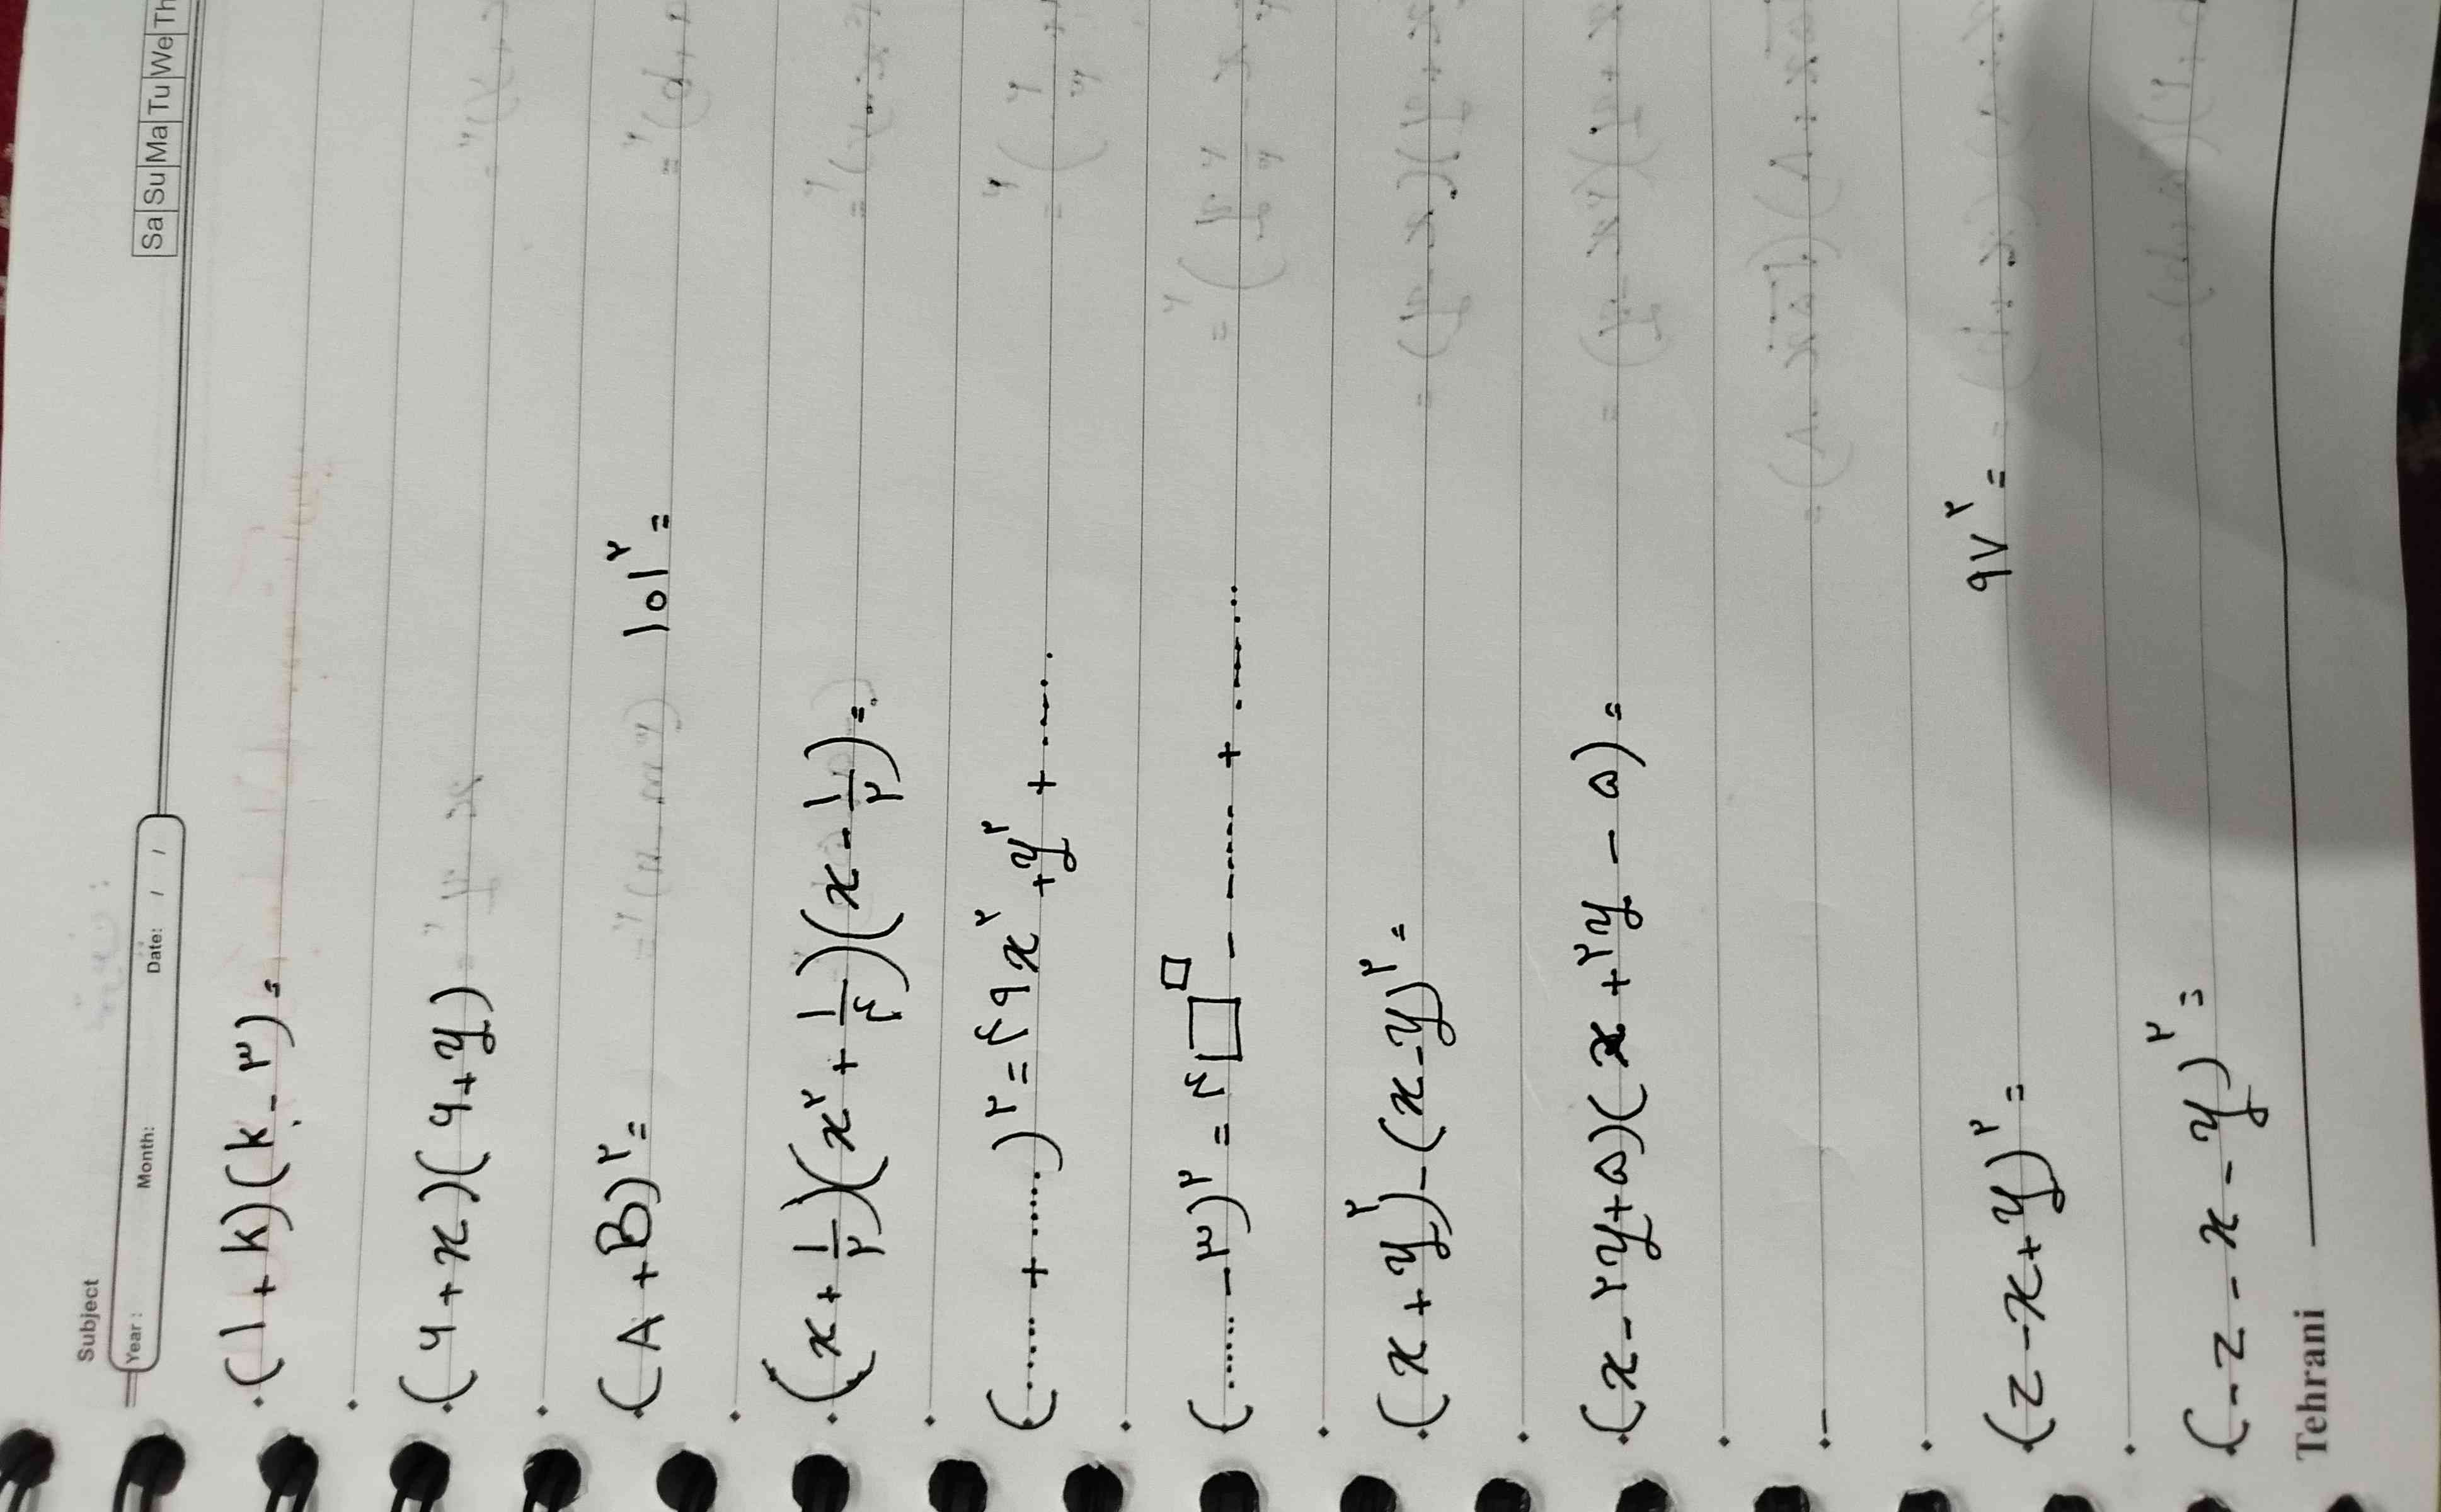 Subject
Year: Month: Date: / /
Sa Su Ma Tu We Th
(۱+k)(k-۳)=
(۶+x)(۶+y)=
(A+B)^۲= ۱۰۱^۲=
(x+۱/۲)(x^۲+۱/۴)(x-۱/۲)=
(......+......)^۲=۴۹x^۲+y^۲+......
(......-۳)^۲=۴□^□-......+......
(x+y)^۲-(x-y)^۲=
(x-۲y+۵)(x+۲y-۵)=
(z-x+y)^۲= ۹۷^۲=
(-z-x-y)^۲=
Tehrani